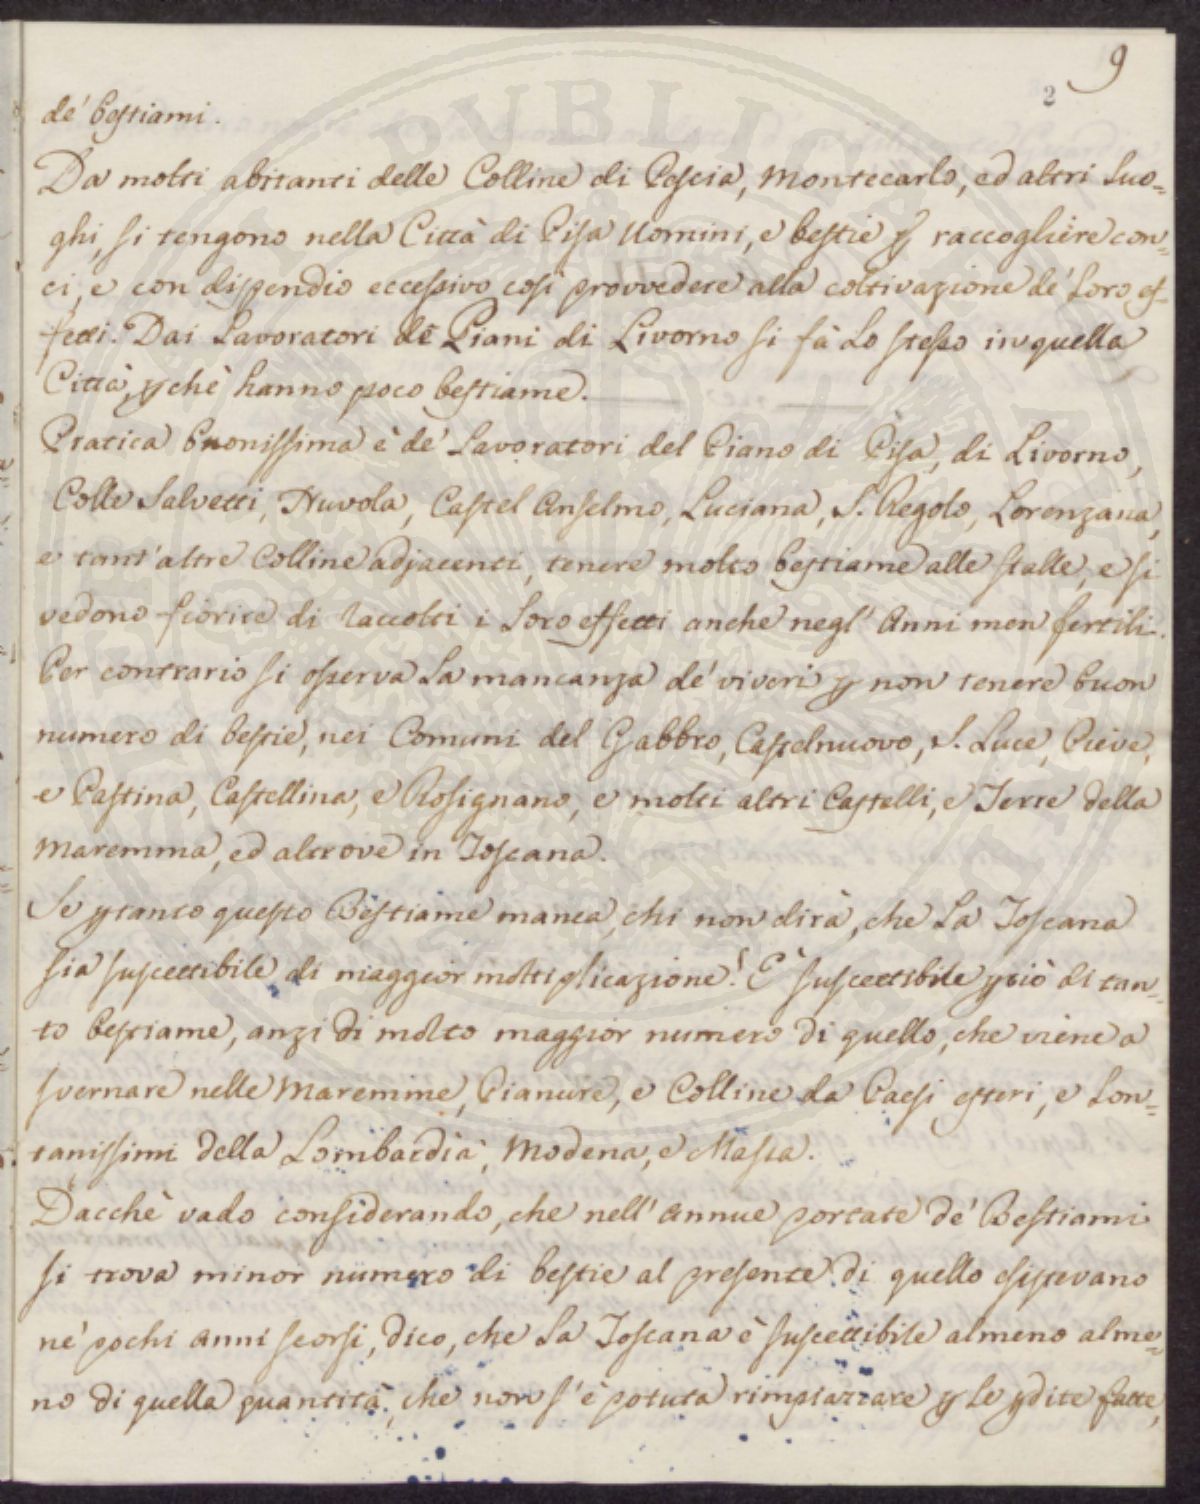 9
2
de' bestiami.
Da molti abitanti delle Colline di Pescia, Montecarlo, ed altri Luo=
ghi, si tengono nella Città di Pisa Uomini, e bestie p raccogliere con=
ci, e con dispendio eccessivo così provvedere alla coltivazione de' Loro ef=
fetti. Dai Lavoratori de Piani di Livorno si fà Lo stesso in quella
Città, pchè hanno poco bestiame.
Pratica buonissima è de' Lavoratori del Piano di Pisa, di Livorno,
Colle Salvetti, Nuvola, Castel Anselmo, Luciana, S. Regolo, Lorenzana,
e tant'altre Colline adjacenti, tenere molto bestiame alle stalle, e si
vedono fiorire di raccolti i Loro effetti anche negl'Anni men fertili.
Per contrario si osserva La mancanza de' viveri p non tenere buon
numero di bestie, nei Comuni del Gabbro, Castelnuovo, S. Luce, Pieve,
e Pastina, Castellina, e Rosignano, e molti altri Castelli, e Terre della
Maremma, ed altrove in Toscana.
Se ptanto questo Bestiame manca, chi non dirà, che La Toscana
sia suscettibile di maggior moltiplicazione! E' suscettibile pciò di tan=
to bestiame, anzi di molto maggior numero di quello, che viene a
svernare nelle Maremme, Pianure, e Colline da Paesi esteri, e Lon=
tanissimi della Lombardia, Modena, e Massa.
Dacchè vado considerando, che nell'Annue portate de' Bestiami
si trova minor numero di bestie al presente di quello esistevano
ne' pochi Anni scorsi, dico, che La Toscana è suscettibile almeno alme=
no di quella quantità, che non s'è potuta rimpiazzare p Le pdite fatte,
PVBLICA